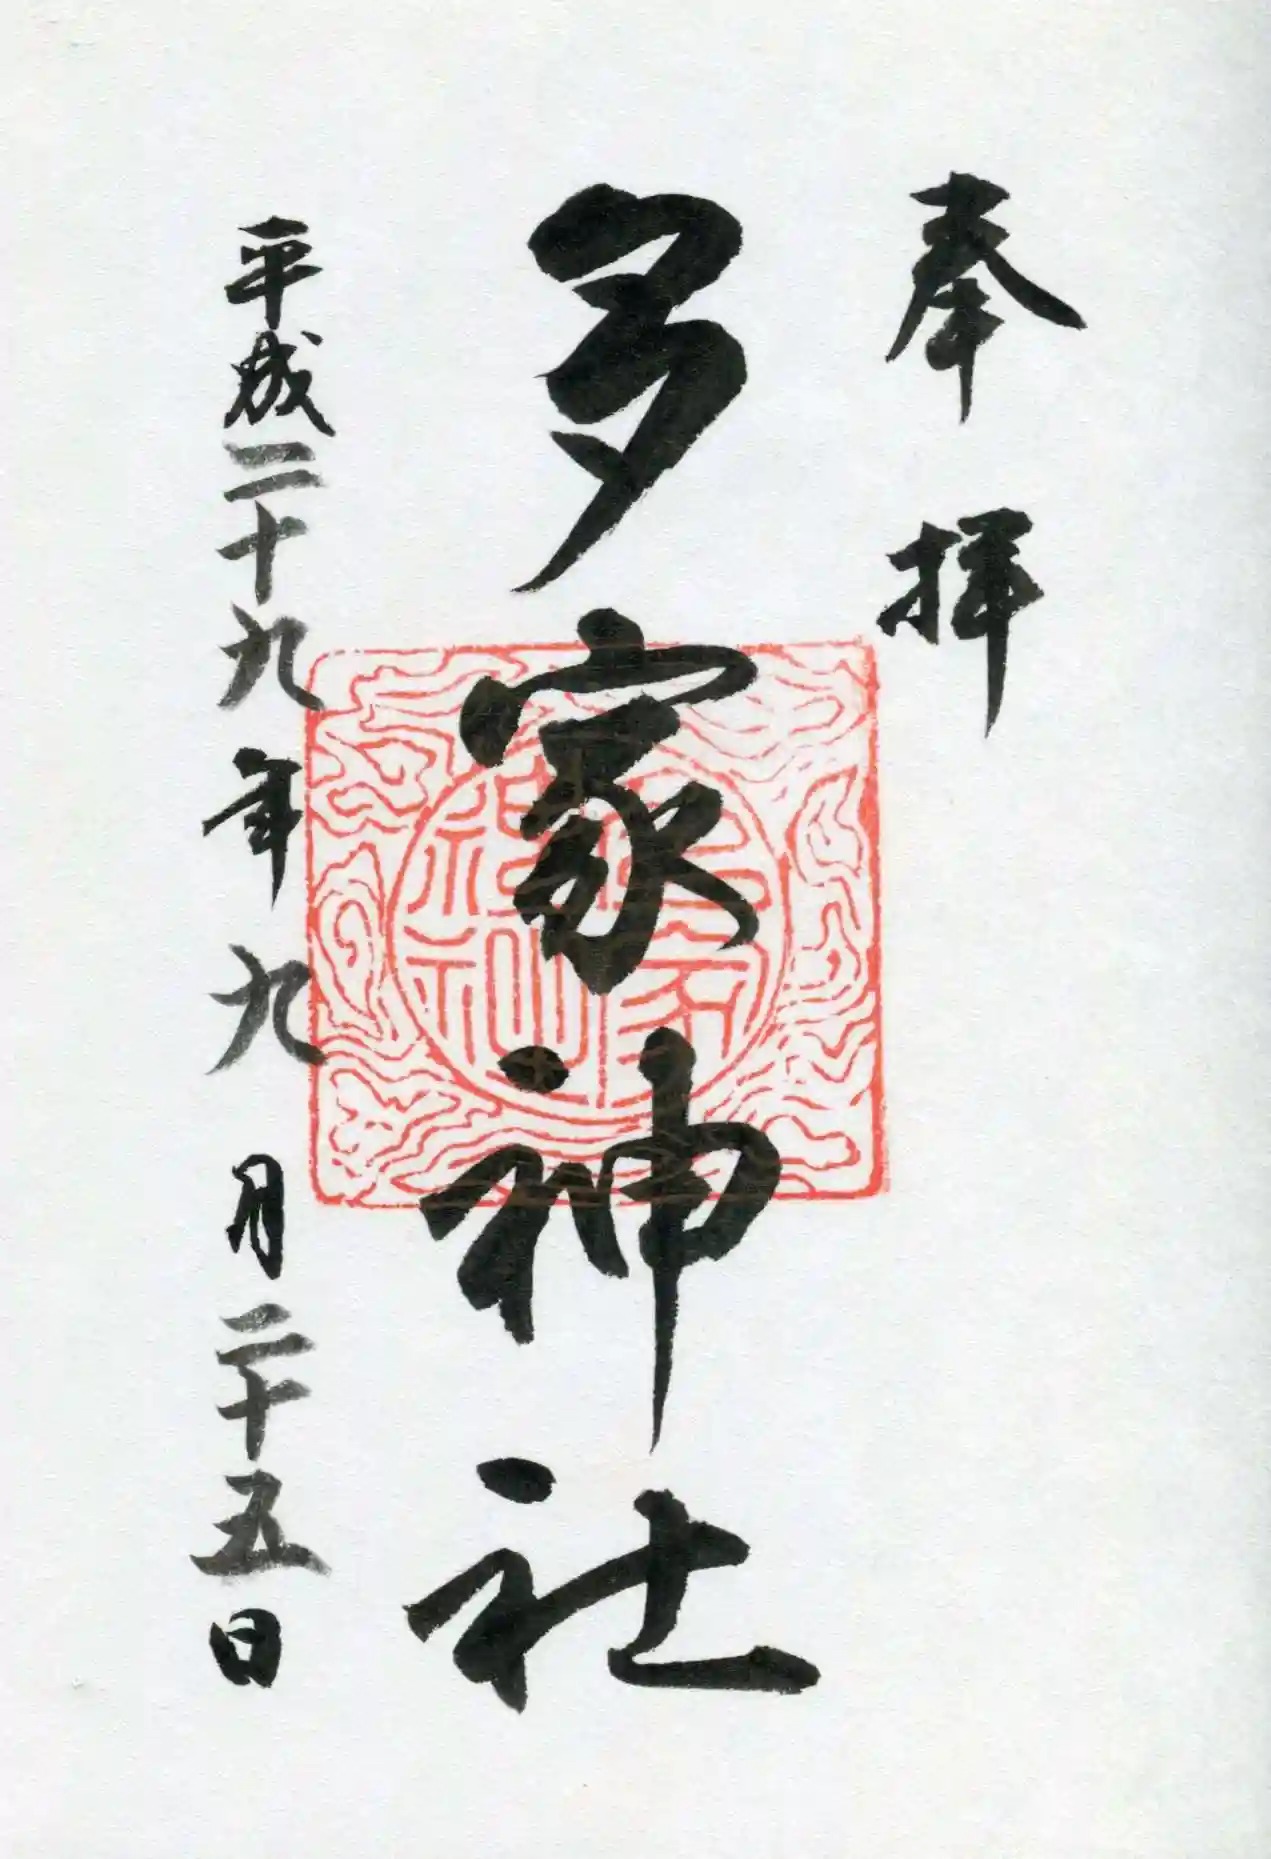 奉拝
多家神社
平成二十九年九月二十五日